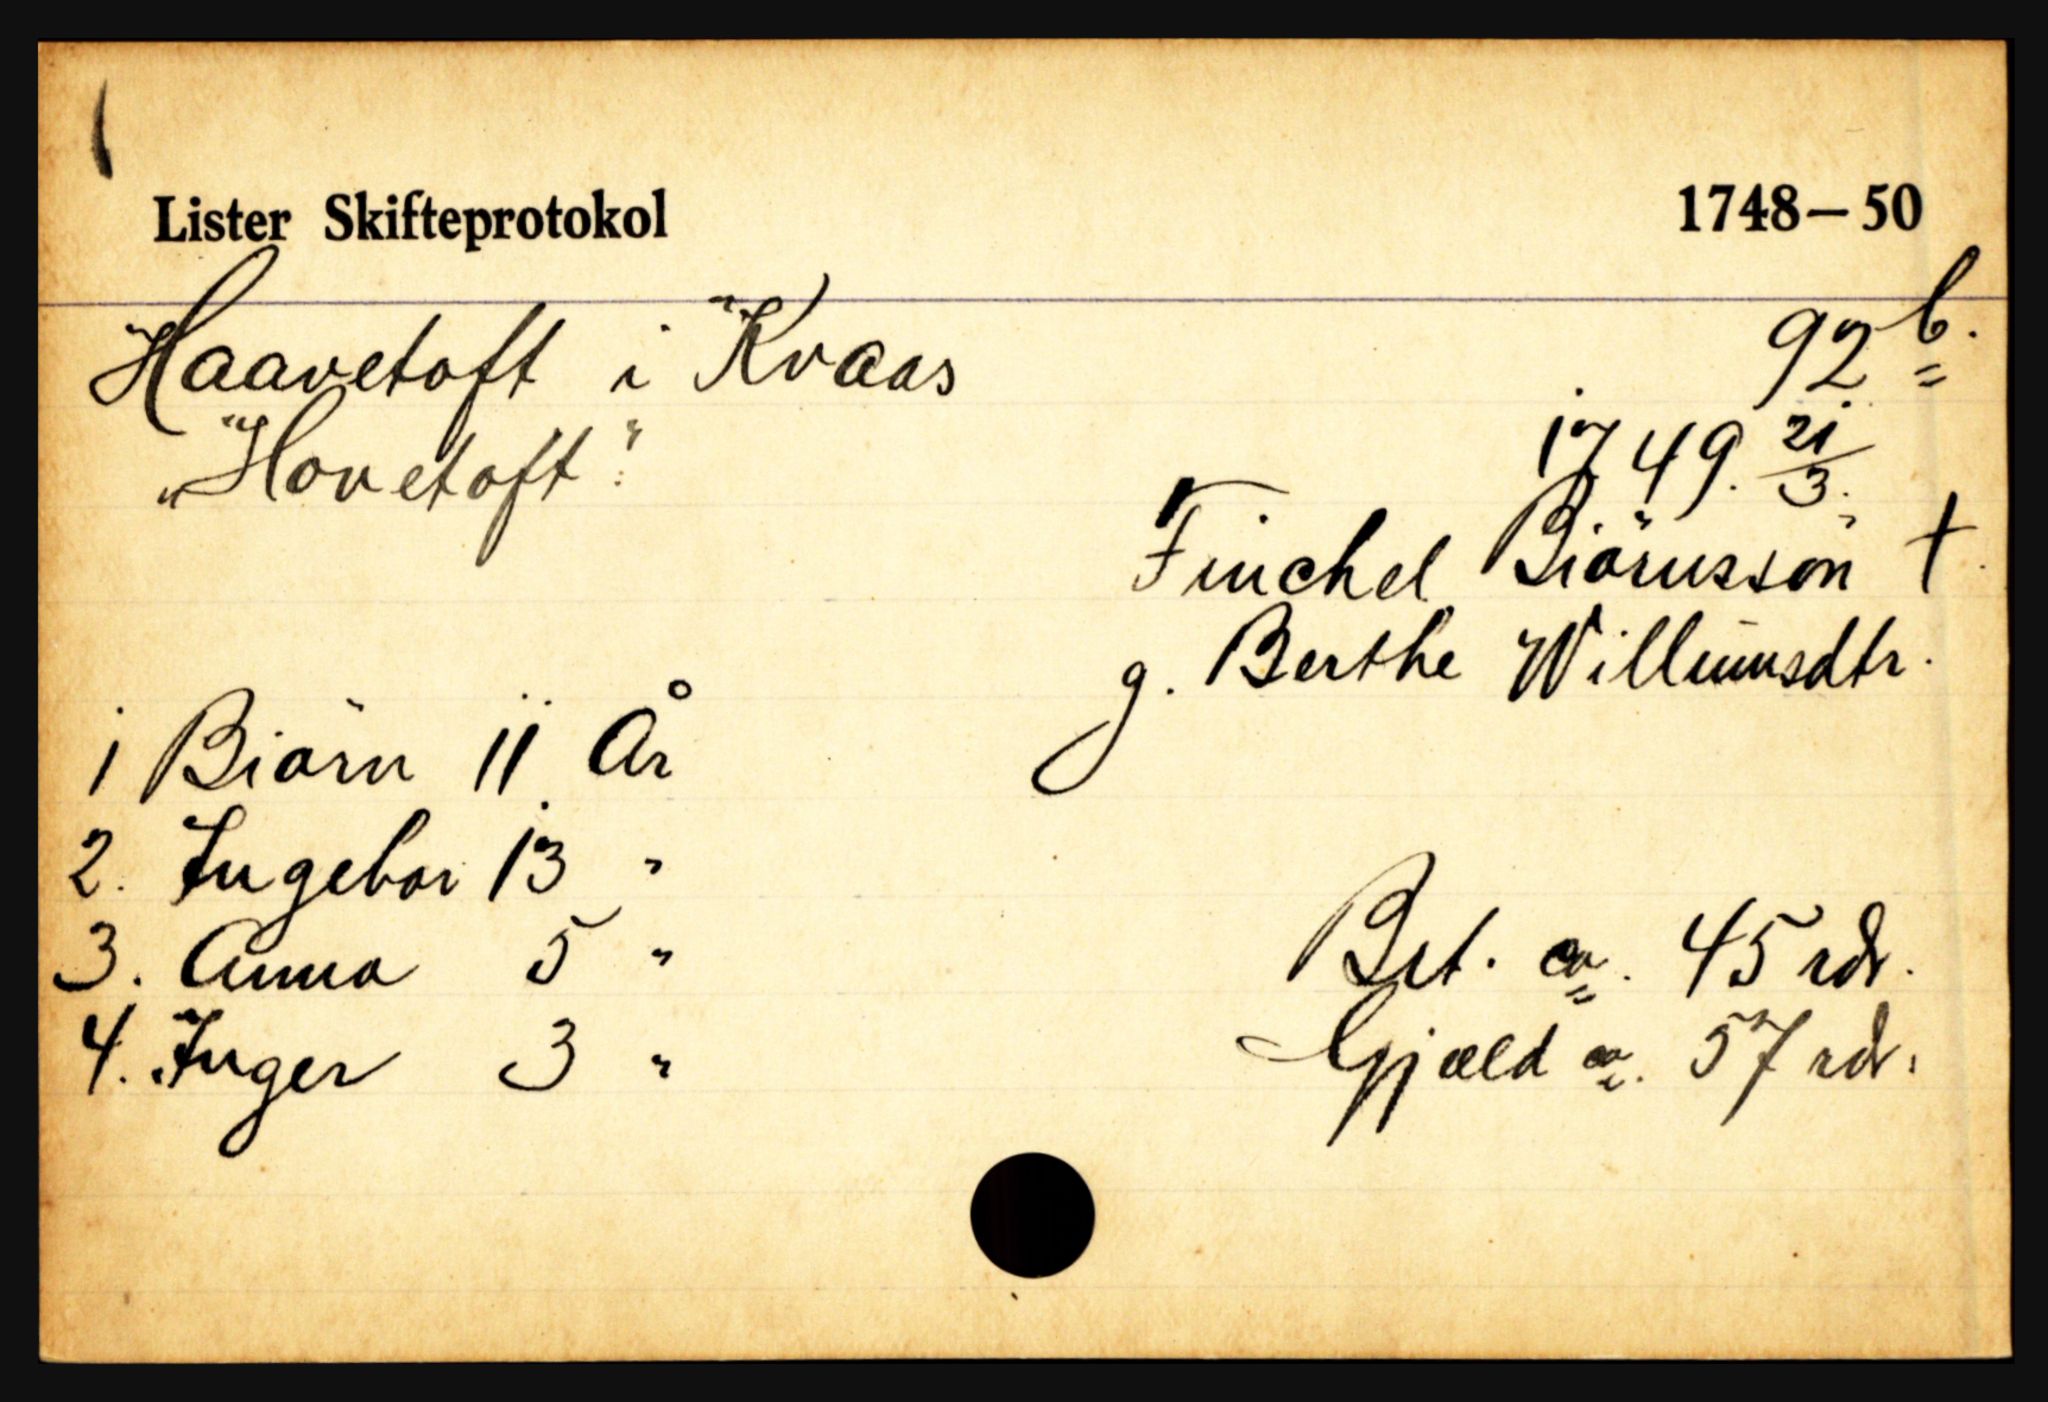 Lister Skifteprotokol 1748–50
Haavetoft i Kvaas 92 b.
"Hovetoft". 1749. 21/3.
Finchel Biörnssön †.
g. Berthe Willumsdtr.
1 Biörn 11 År
2. Ingebor 13 "
3. Anna 5 "
4. Inger 3 "
Brt. ca. 45 rdr.
Gjæld ca. 57 rdr.